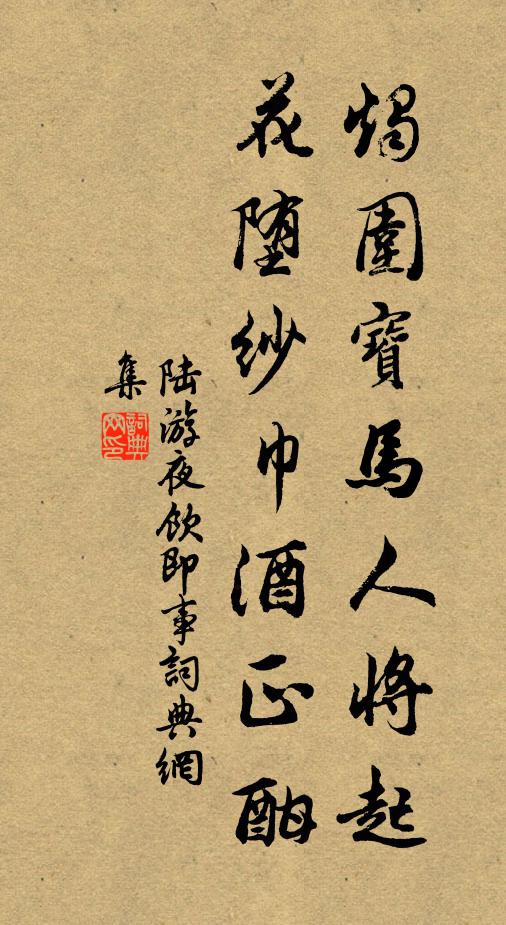 燭圍寶馬人將起
花墮紗巾酒正酣
陸游夜飲即事詞典網
集
詞典網印